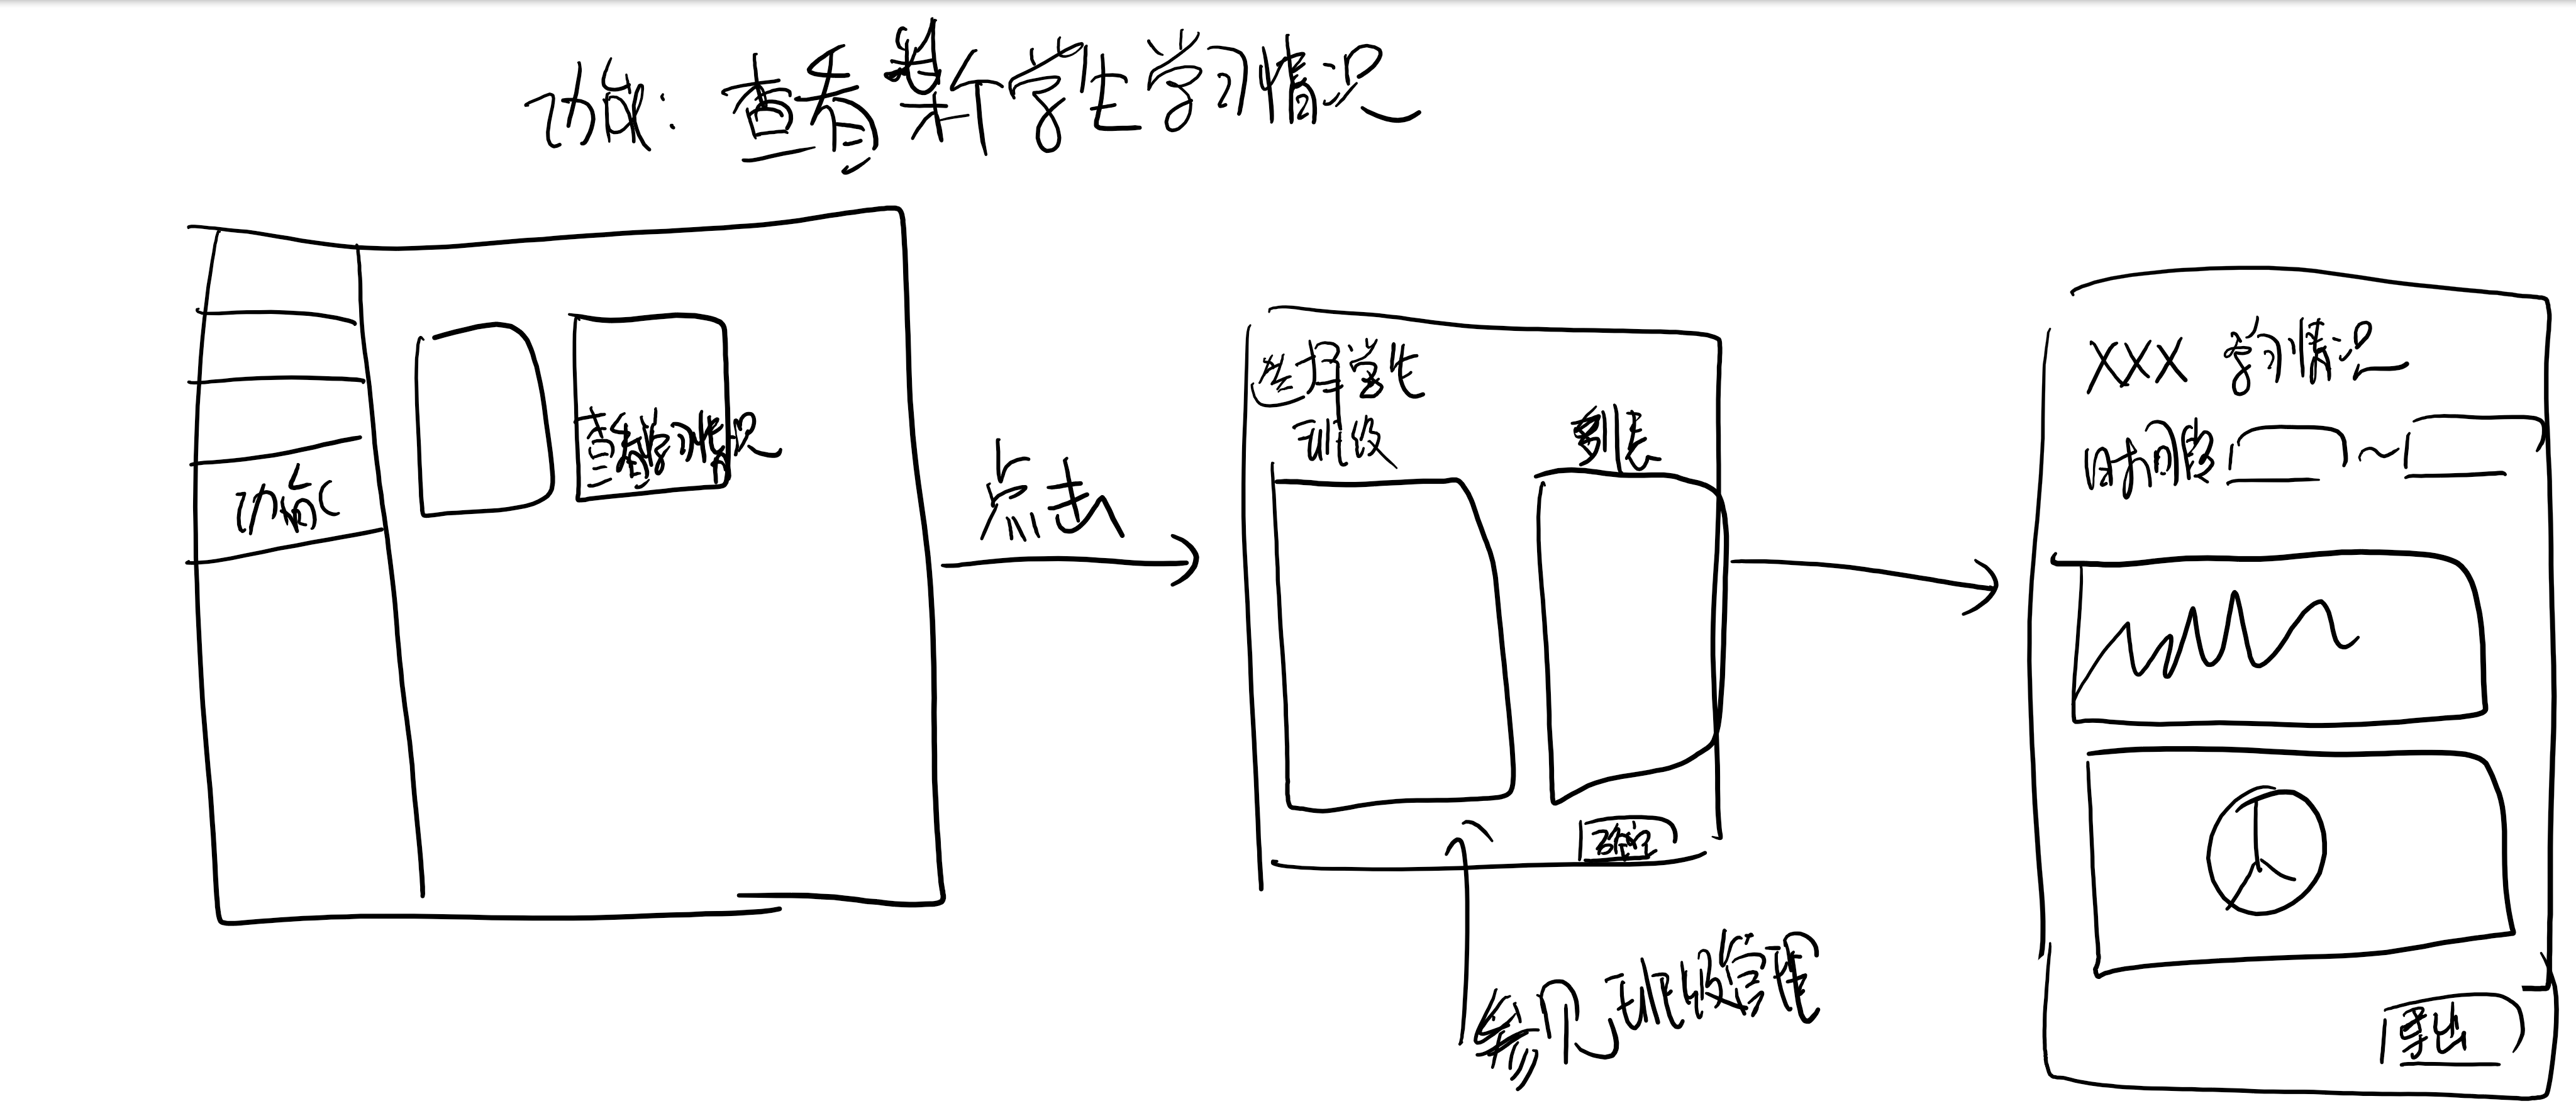 功能：查看某个学生学习情况
功能
查看学习情况
点击
选择学生
班级
列表
确定
参见班级管理
XXX 学习情况
时间段 ～
导出